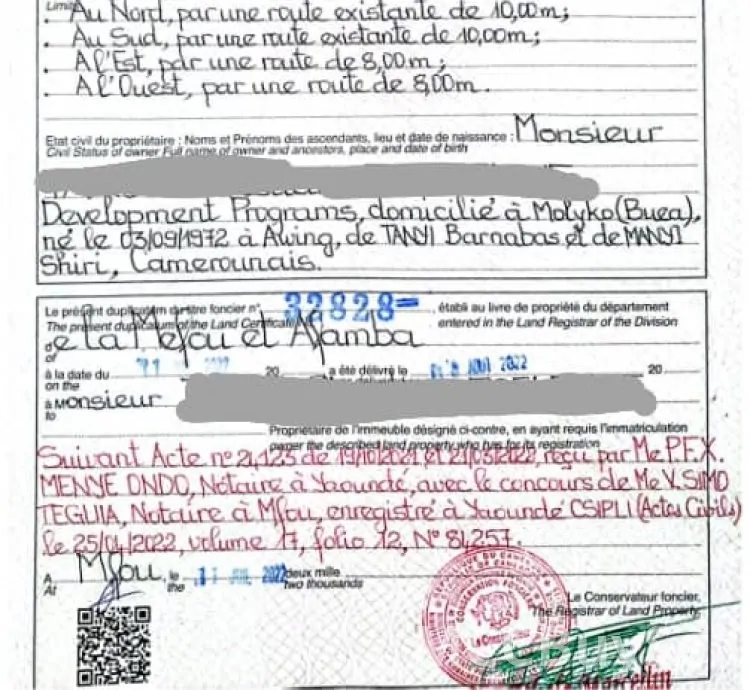 Limit
. Au Nord, par une route existante de 10,00m;
. Au Sud, par une route existante de 10,00m;
. A l'Est, par une route de 8,00m;
. A l'Ouest, par une route de 8,00m.
Etat civil du propriétaire : Noms et Prénoms des ascendants, lieu et date de naissance : Monsieur
Civil Status of owner Full name of owner and ancestors, place and date of birth
Development Programs, domicilié à Molyko (Buea),
né le 03/09/1972 à Awing, de TANYI Barnabas et de MANYI
Shiri, Camerounais.
Le présent duplicatum du titre foncier n° 32828= , établi au livre de propriété du département
The present duplicatum of the Land Certificate entered in the Land Registrar of the Division
de la Mefou et Afamba
of
à la date du 2022 20 a été délivré le 2022 20
on the
à Monsieur
to
Propriétaire de l'immeuble désigné ci-contre, en ayant requis l'immatriculation
owner the described land property who has for its registration
Suivant Acte n° 21,123 de 19/10/2021 et 21/03/2022, reçu par Me P.F.X.
MENYE ONDO, Notaire à Yaoundé, avec le concours de Me V. SIMO
TEGUIA, Notaire à Mfou, enregistré à Yaoundé CSIPLI (Actes Civils)
le 25/04/2022, volume 17, folio 12, N° 81,257.
A Mfou, le 2022 deux mille
At the two thousands
Le Conservateur foncier,
The Registrar of Land Property,
CONSERVATION FONCIERE